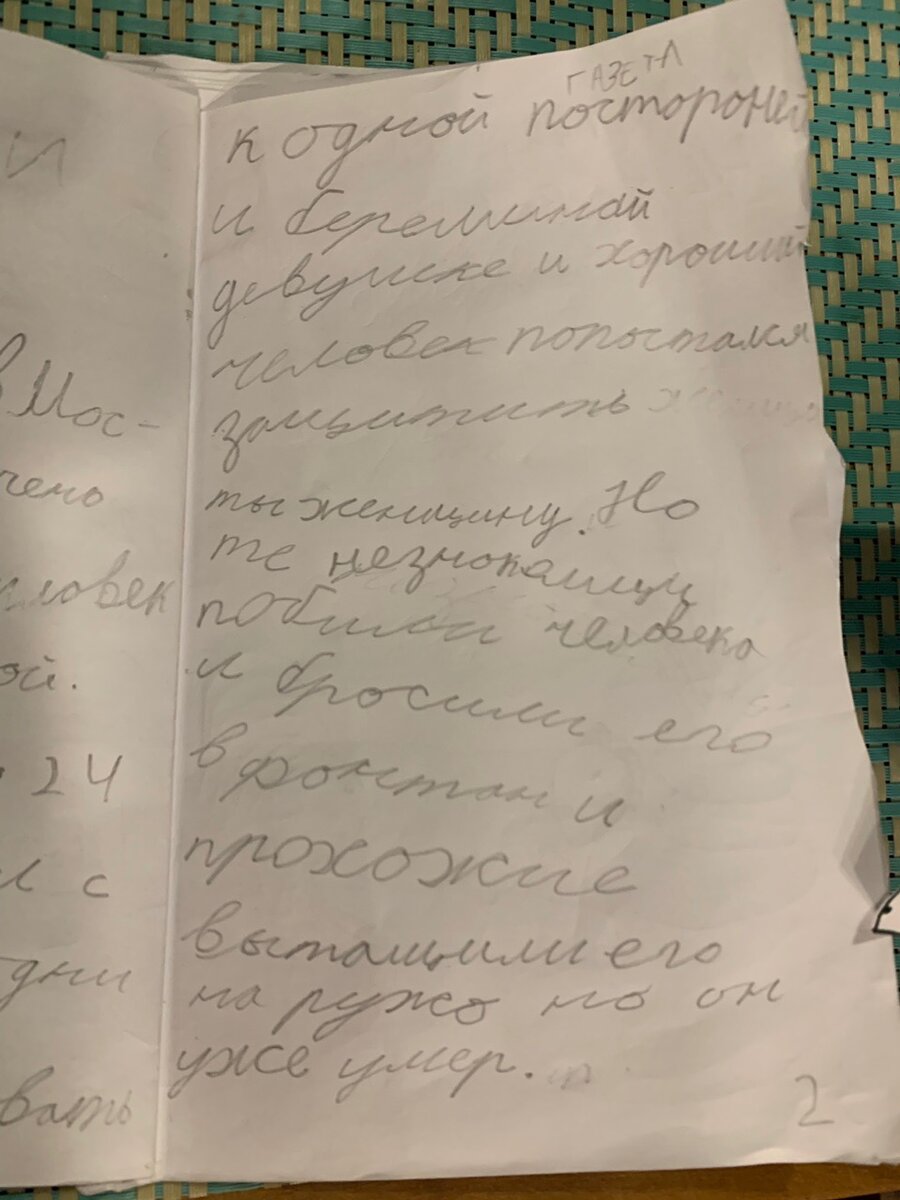 и
в Мос-
чено
человек
ой.
24
л с
дни
вать
ГАЗЕТА
к одной постороней
и береминой
девушке и хороший
человек попытался
защитить
ты женщину. Но
те незнокамцы
побили человека
и бросили его
в фонтан и
прохожие
вытащили его
на ружо но он
уже умер.
2